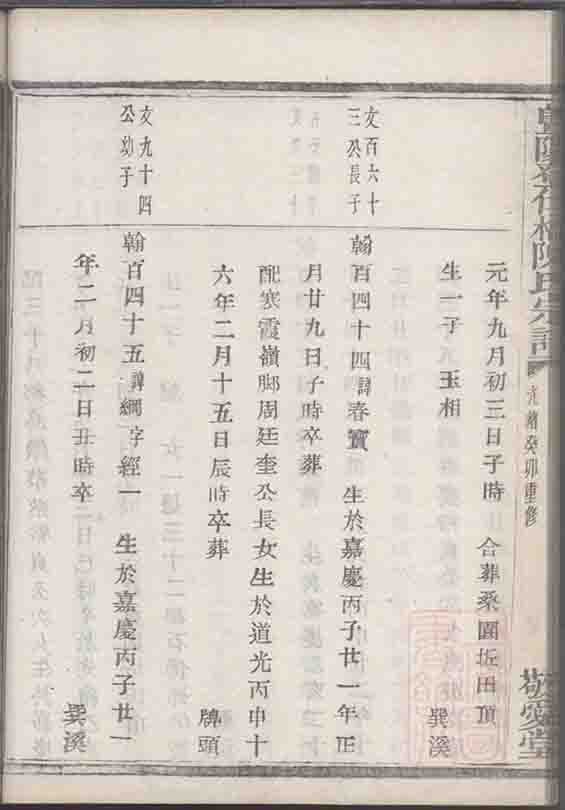 陳氏宗譜
光緒癸卯重修
敬愛堂
元年九月初三日子時 合葬桑園坂田頂
生一子玉相 巽溪
文百六十
三公長子
翰百四十四諱春寶 生於嘉慶丙子廿一年正
月廿九日子時卒葬
配寒霞嶺腳周廷奎公長女生於道光丙申十
六年二月十五日辰時卒葬 牌頭
文九十四
公幼子
翰百四十五諱綱字經一 生於嘉慶丙子廿一
年二月初二日丑時卒 巽溪